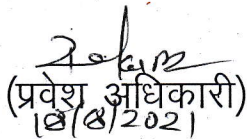 (प्रवेश अधिकारी)
18/8/2021